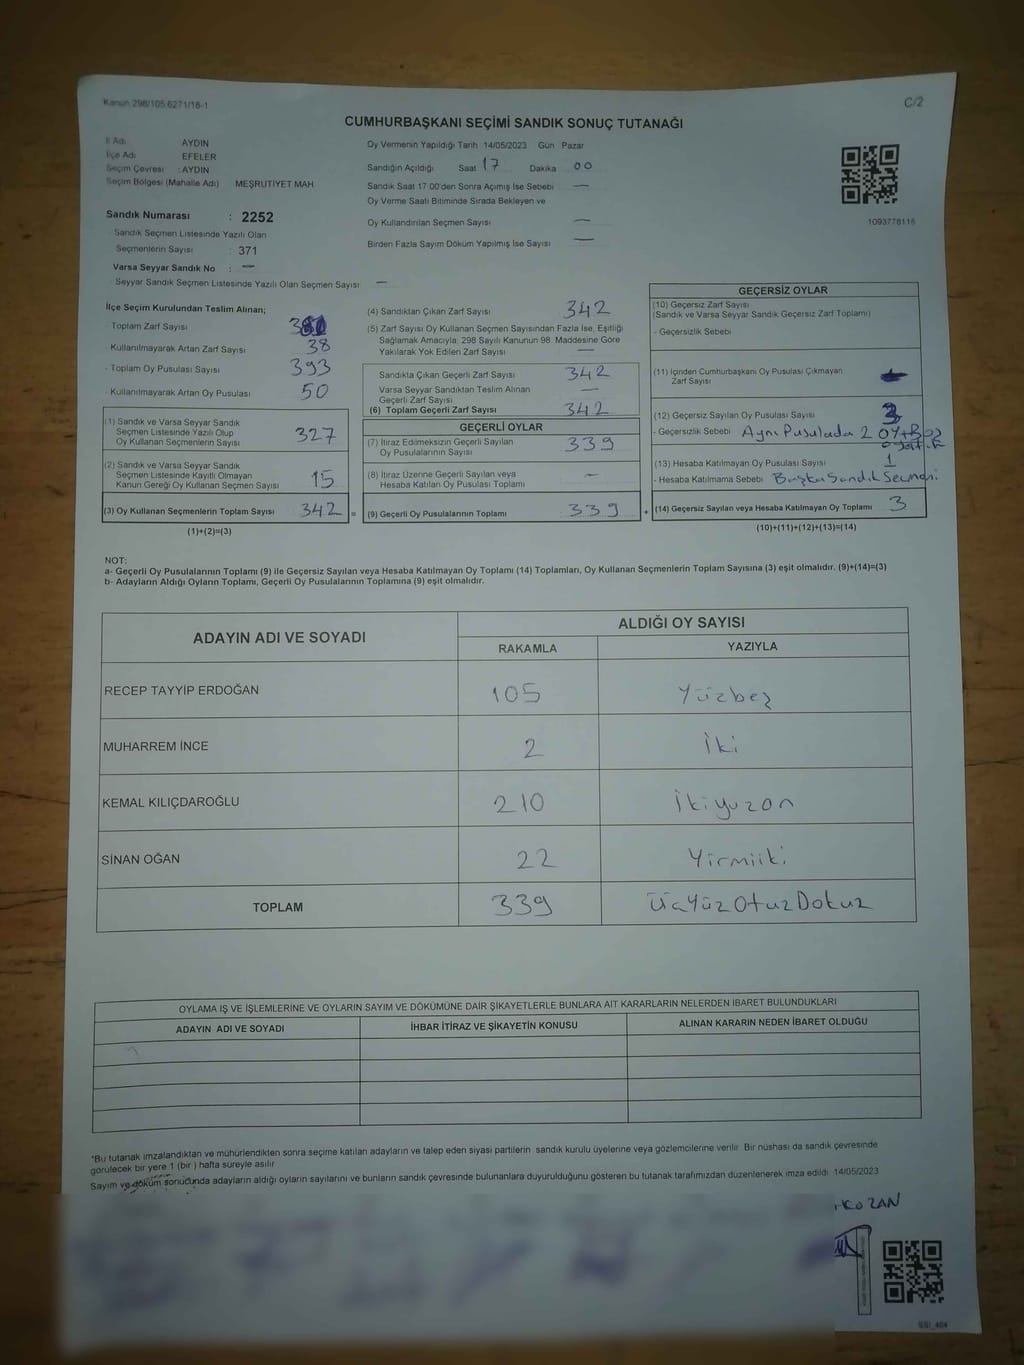 Kanun 298/105.6271/18-1
C/2
CUMHURBAŞKANI SEÇİMİ SANDIK SONUÇ TUTANAĞI
İl Adı AYDIN
İlçe Adı EFELER
Seçim Çevresi : AYDIN
Seçim Bölgesi (Mahalle Adı) MEŞRUTİYET MAH.
Sandık Numarası : 2252
Sandık Seçmen Listesinde Yazılı Olan
Seçmenlerin Sayısı : 371
Varsa Seyyar Sandık No : —
Seyyar Sandık Seçmen Listesinde Yazılı Olan Seçmen Sayısı —
Oy Vermenin Yapıldığı Tarih 14/05/2023 Gün Pazar
Sandığın Açıldığı Saat 17 Dakika 00
Sandık Saat 17 00'den Sonra Açımış İse Sebebi —
Oy Verme Saati Bitiminde Sırada Bekleyen ve
Oy Kullandırılan Seçmen Sayısı —
Birden Fazla Sayım Döküm Yapılmış İse Sayısı —
1093778115
İlçe Seçim Kurulundan Teslim Alınan;
Toplam Zarf Sayısı
- Kullanılmayarak Artan Zarf Sayısı 38
- Toplam Oy Pusulası Sayısı 393
- Kullanılmayarak Artan Oy Pusulası 50
(1) Sandık ve Varsa Seyyar Sandık
Seçmen Listesinde Yazılı Olup
Oy Kullanan Seçmenlerin Sayısı 327
(2) Sandık ve Varsa Seyyar Sandık
Seçmen Listesinde Kayıtlı Olmayan
Kanun Gereği Oy Kullanan Seçmen Sayısı 15
(3) Oy Kullanan Seçmenlerin Toplam Sayısı 342 =
(1)+(2)=(3)
(4) Sandıktan Çıkan Zarf Sayısı 342
(5) Zarf Sayısı Oy Kullanan Seçmen Sayısından Fazla İse, Eşitliği
Sağlamak Amacıyla; 298 Sayılı Kanunun 98. Maddesine Göre
Yakılarak Yok Edilen Zarf Sayısı —
Sandıkta Çıkan Geçerli Zarf Sayısı 342
Varsa Seyyar Sandıktan Teslim Alınan
Geçerli Zarf Sayısı —
(6) Toplam Geçerli Zarf Sayısı 342
GEÇERLİ OYLAR
(7) İtiraz Edilmeksizin Geçerli Sayılan
Oy Pusulalarının Sayısı 339
(8) İtiraz Üzerine Geçerli Sayılan veya
Hesaba Katılan Oy Pusulası Toplamı —
(9) Geçerli Oy Pusulalarının Toplamı 339 +
GEÇERSİZ OYLAR
(10) Geçersiz Zarf Sayısı
(Sandık ve Varsa Seyyar Sandık Geçersiz Zarf Toplamı)
- Geçersizlik Sebebi
(11) İçinden Cumhurbaşkanı Oy Pusulası Çıkmayan
Zarf Sayısı
(12) Geçersiz Sayılan Oy Pusulası Sayısı
- Geçersizlik Sebebi Aynı Pusulada 2 oy+Boş
(13) Hesaba Katılmayan Oy Pusulası Sayısı 1
- Hesaba Katılmama Sebebi Başka Sandık Seçmeni
(14) Geçersiz Sayılan veya Hesaba Katılmayan Oy Toplamı 3
(10)+(11)+(12)+(13)=(14)
NOT:
a- Geçerli Oy Pusulalarının Toplamı (9) ile Geçersiz Sayılan veya Hesaba Katılmayan Oy Toplamı (14) Toplamları, Oy Kullanan Seçmenlerin Toplam Sayısına (3) eşit olmalıdır. (9)+(14)=(3)
b- Adayların Aldığı Oyların Toplamı, Geçerli Oy Pusulalarının Toplamına (9) eşit olmalıdır.
ADAYIN ADI VE SOYADI
ALDIĞI OY SAYISI
RAKAMLA YAZIYLA
RECEP TAYYİP ERDOĞAN 105 Yüzbeş
MUHARREM İNCE 2 İki
KEMAL KILIÇDAROĞLU 210 İkiyuzon
SİNAN OĞAN 22 Yirmiiki
TOPLAM 339 ÜçYüzOtuzDokuz
OYLAMA İŞ VE İŞLEMLERİNE VE OYLARIN SAYIM VE DÖKÜMÜNE DAİR ŞİKAYETLERLE BUNLARA AİT KARARLARIN NELERDEN İBARET BULUNDUKLARI
ADAYIN ADI VE SOYADI İHBAR İTİRAZ VE ŞİKAYETİN KONUSU ALINAN KARARIN NEDEN İBARET OLDUĞU
*Bu tutanak imzalandıktan ve mühürlendikten sonra seçime katılan adayların ve talep eden siyasi partilerin sandık kurulu üyelerine veya gözlemcilerine verilir. Bir nüshası da sandık çevresinde
görülecek bir yere 1 (bir ) hafta süreyle asılır.
Sayım ve döküm sonucunda adayların aldığı oyların sayılarını ve bunların sandık çevresinde bulunanlara duyurulduğunu gösteren bu tutanak tarafımızdan düzenlenerek imza edildi. 14/05/2023
KOZAN